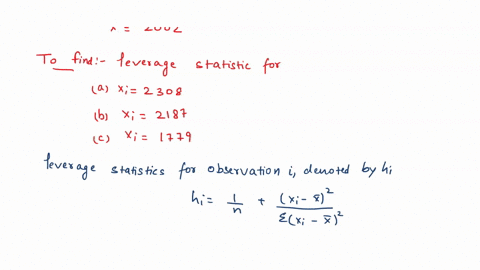 x̄ = 2002
To find:- leverage statistic for
(a) xi = 2308
(b) xi = 2187
(c) xi = 1779
leverage statistics for observation i, denoted by hi
hi = 1/n + (xi - x̄)² / Σ(xi - x̄)²